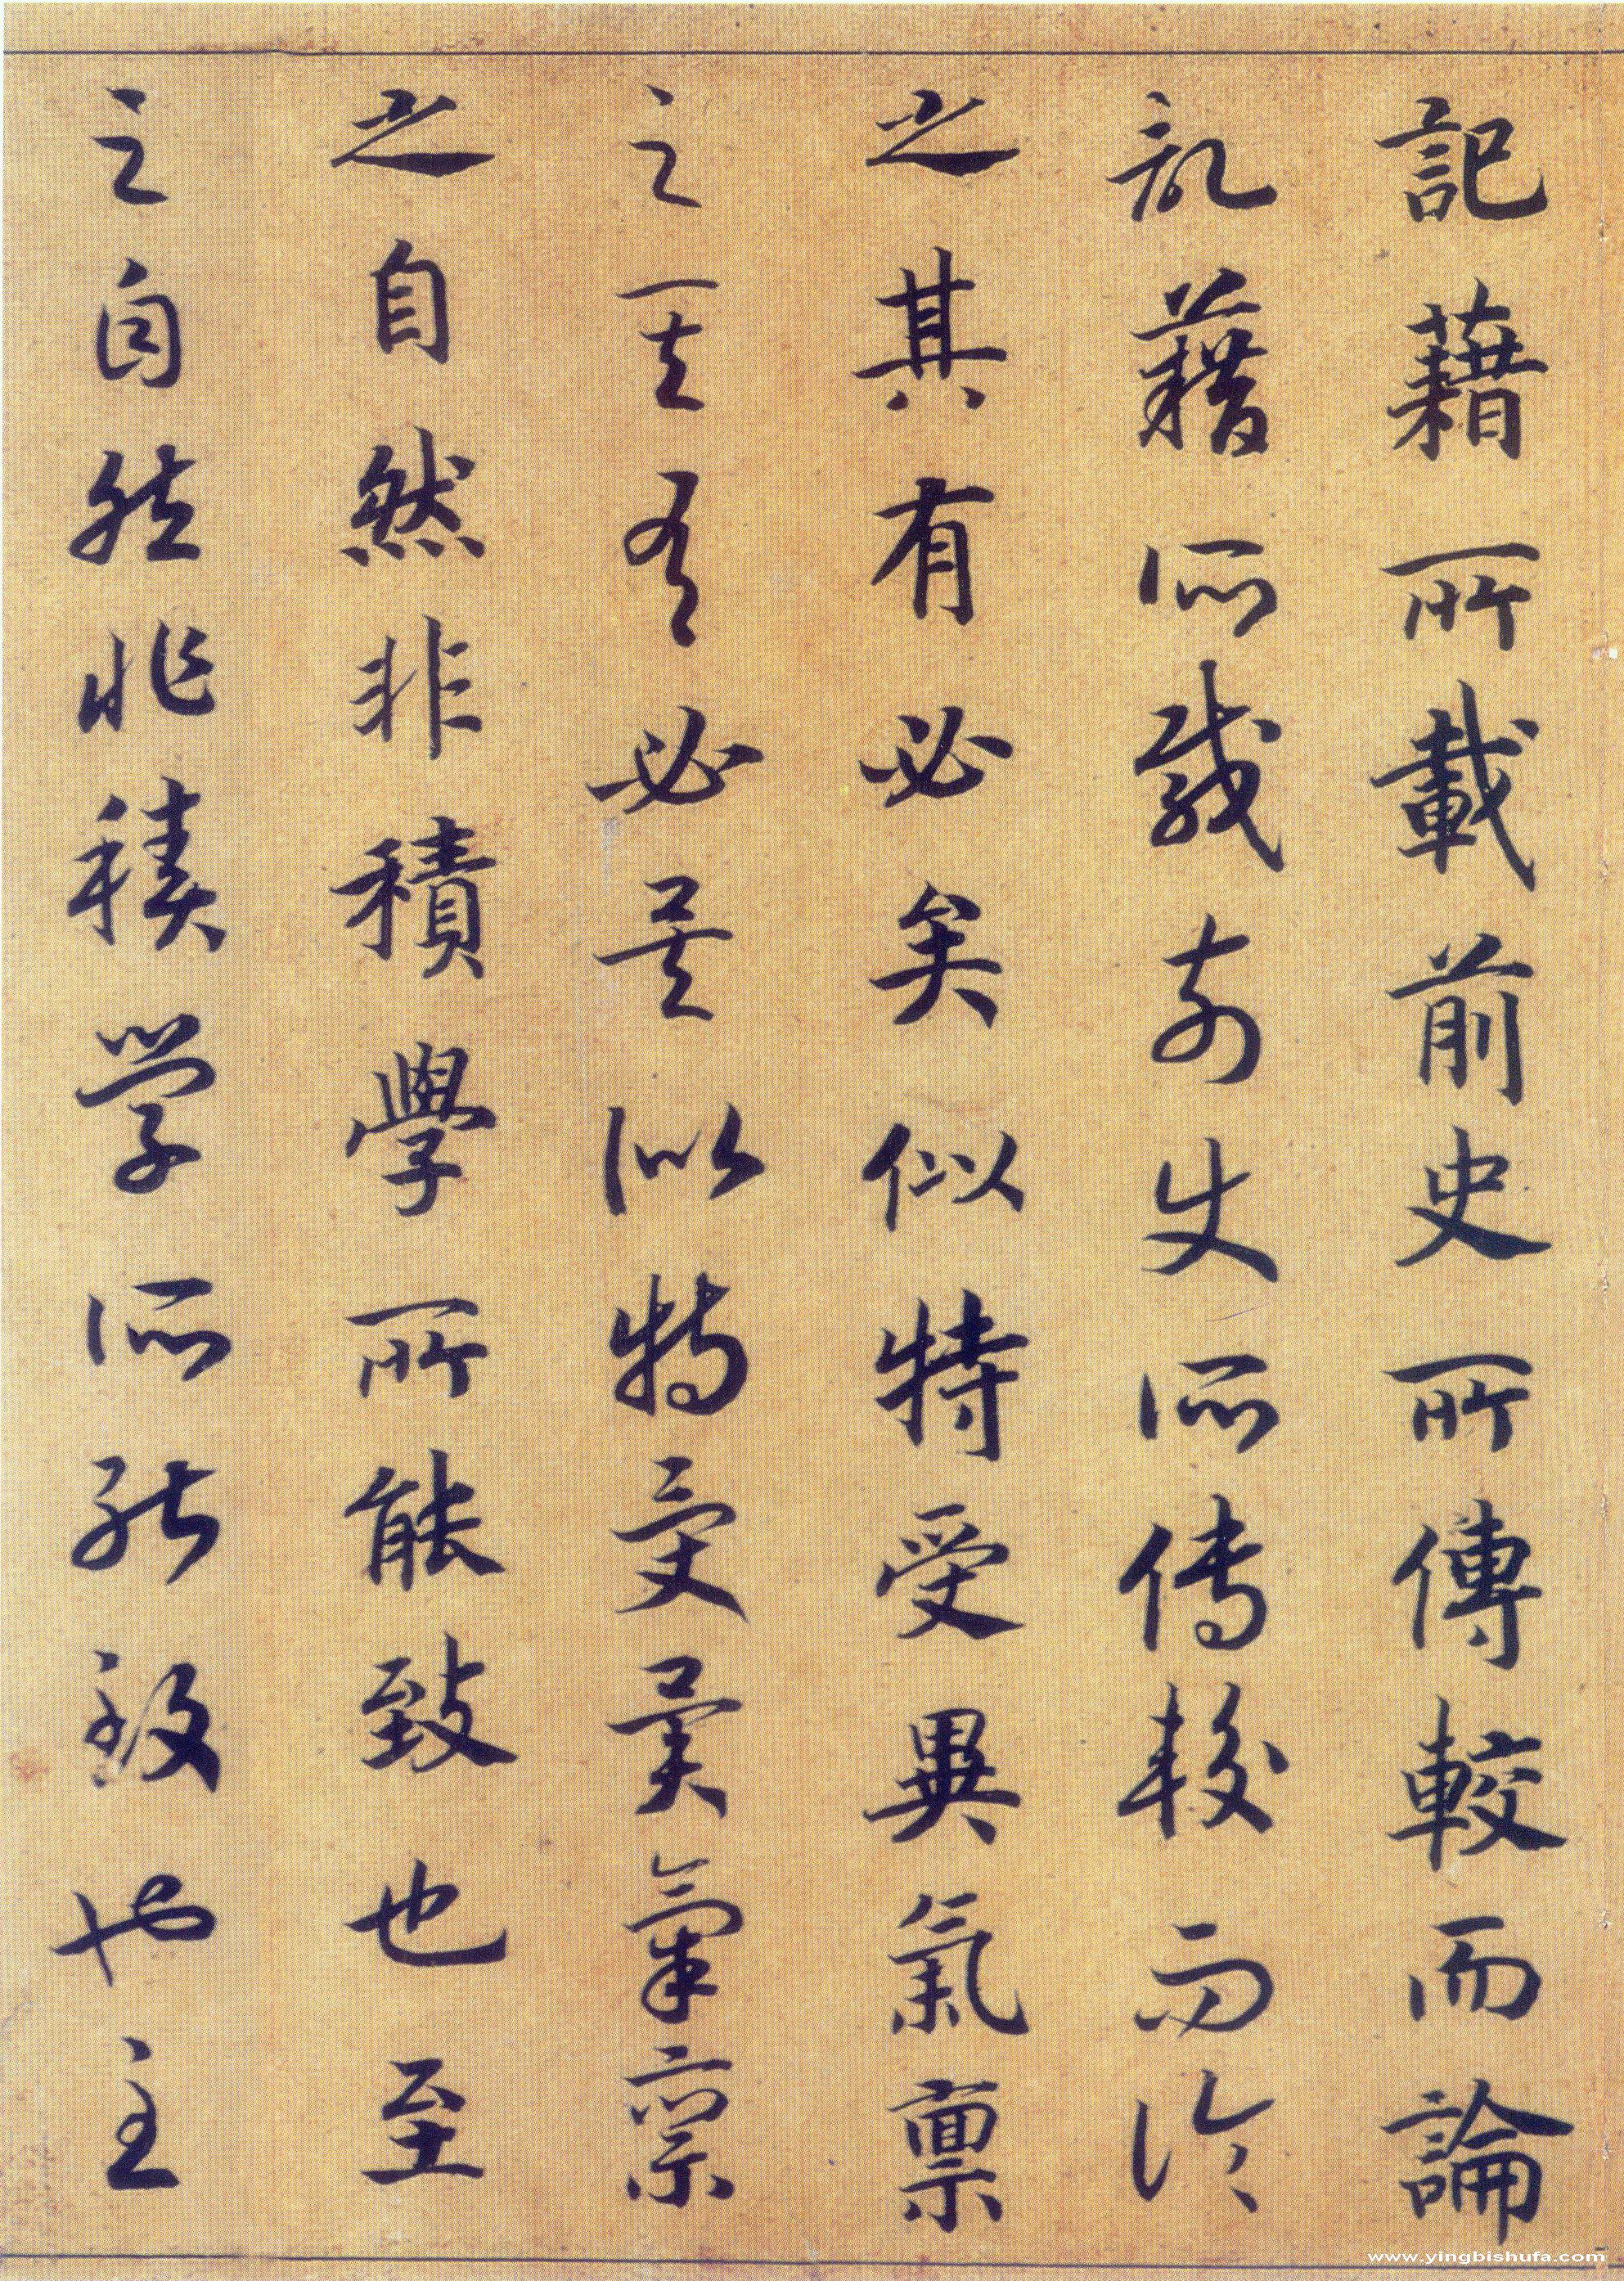 記藉所載前史所傳較而論
記藉所載前史所傳較而論
之其有必矣似特受異氣稟
之其有必矣似特受異氣稟
之自然非積學所能致也至
之自然非積學所能致也至
www.yingbishufa.com